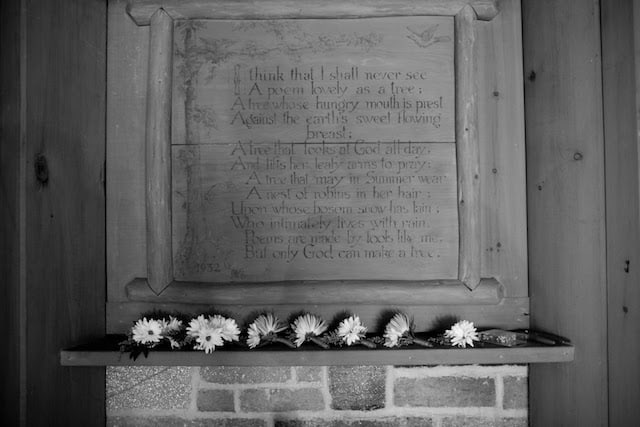 I think that I shall never see
A poem lovely as a tree;
A tree whose hungry mouth is prest
Against the earth's sweet flowing
breast;
A tree that looks at God all day,
And lifts her leafy arms to pray;
A tree that may in Summer wear
A nest of robins in her hair;
Upon whose bosom snow has lain;
Who intimately lives with rain.
Poems are made by fools like me,
But only God can make a tree.
1932